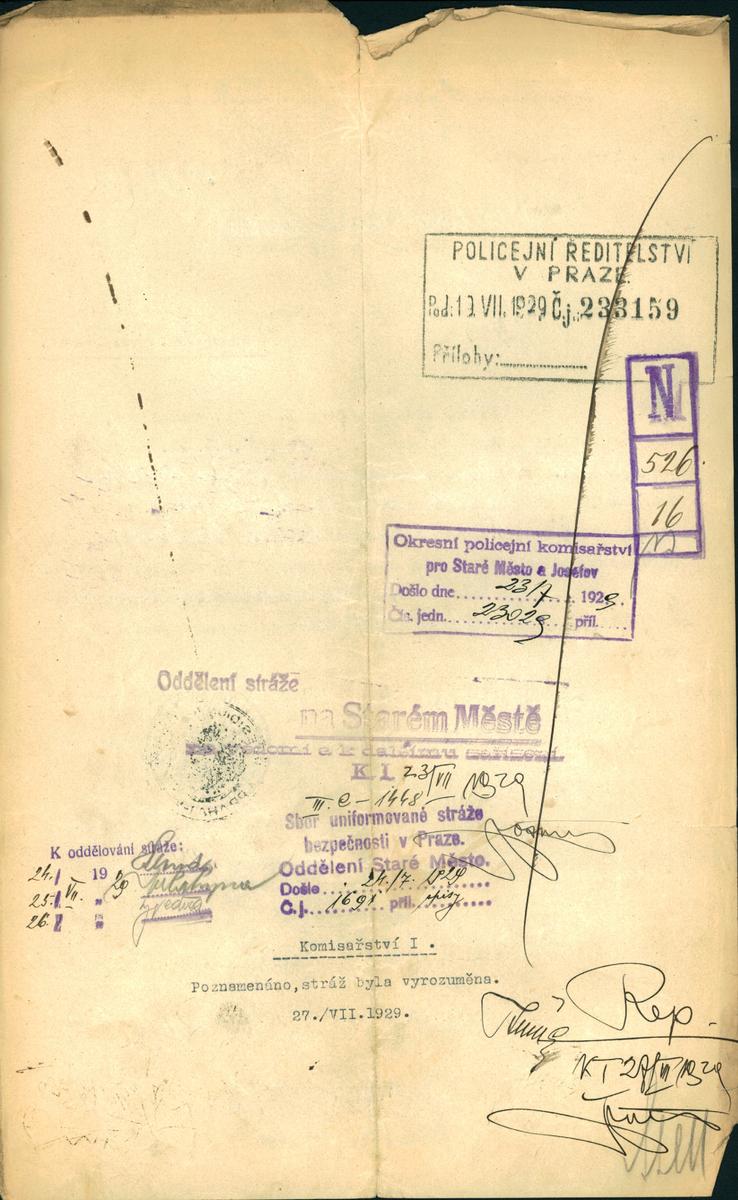 POLICEJNÍ ŘEDITELSTVÍ
V PRAZE
Pod: 19. VII. 1929 Čj. 233159
Přílohy:
N
526
16
Okresní policejní komisařství
pro Staré Město a Josefov
Došlo dne 23/7 1929.
Čís. jedn. 23029 příl.
Oddělení stráže
na Starém Městě
na vědomí a k dalšímu zařízení
K I 23/VII 1929
III. C - 1448
Sbor uniformované stráže
bezpečnosti v Praze.
Oddělení Staré Město.
Došlo: 24/7. 1929
Č.j. příl. spisy
K oddělování stráže:
24./ 19 29
25./ VII. "
26./ " "
Komisařství I.
Poznamenáno, stráž byla vyrozuměna.
27./VII.1929.
Rep.
K I 27/VII 1929